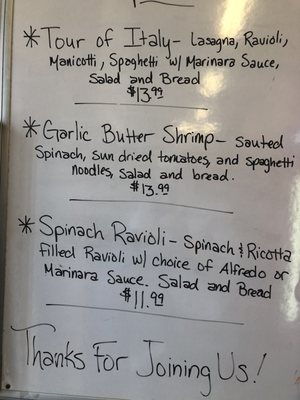 *Tour of Italy- Lasagna, Ravioli,
Manicotti, Spaghetti w/ Marinara Sauce,
Salad and Bread
$13.99
*Garlic Butter Shrimp- Sauted
Spinach, sun dried tomatoes, and spaghetti
noodles, Salad and bread.
$13.99
*Spinach Ravioli- Spinach & Ricotta
filled Ravioli w/ choice of Alfredo or
Marinara Sauce. Salad and Bread
$11.99
Thanks For Joining Us!